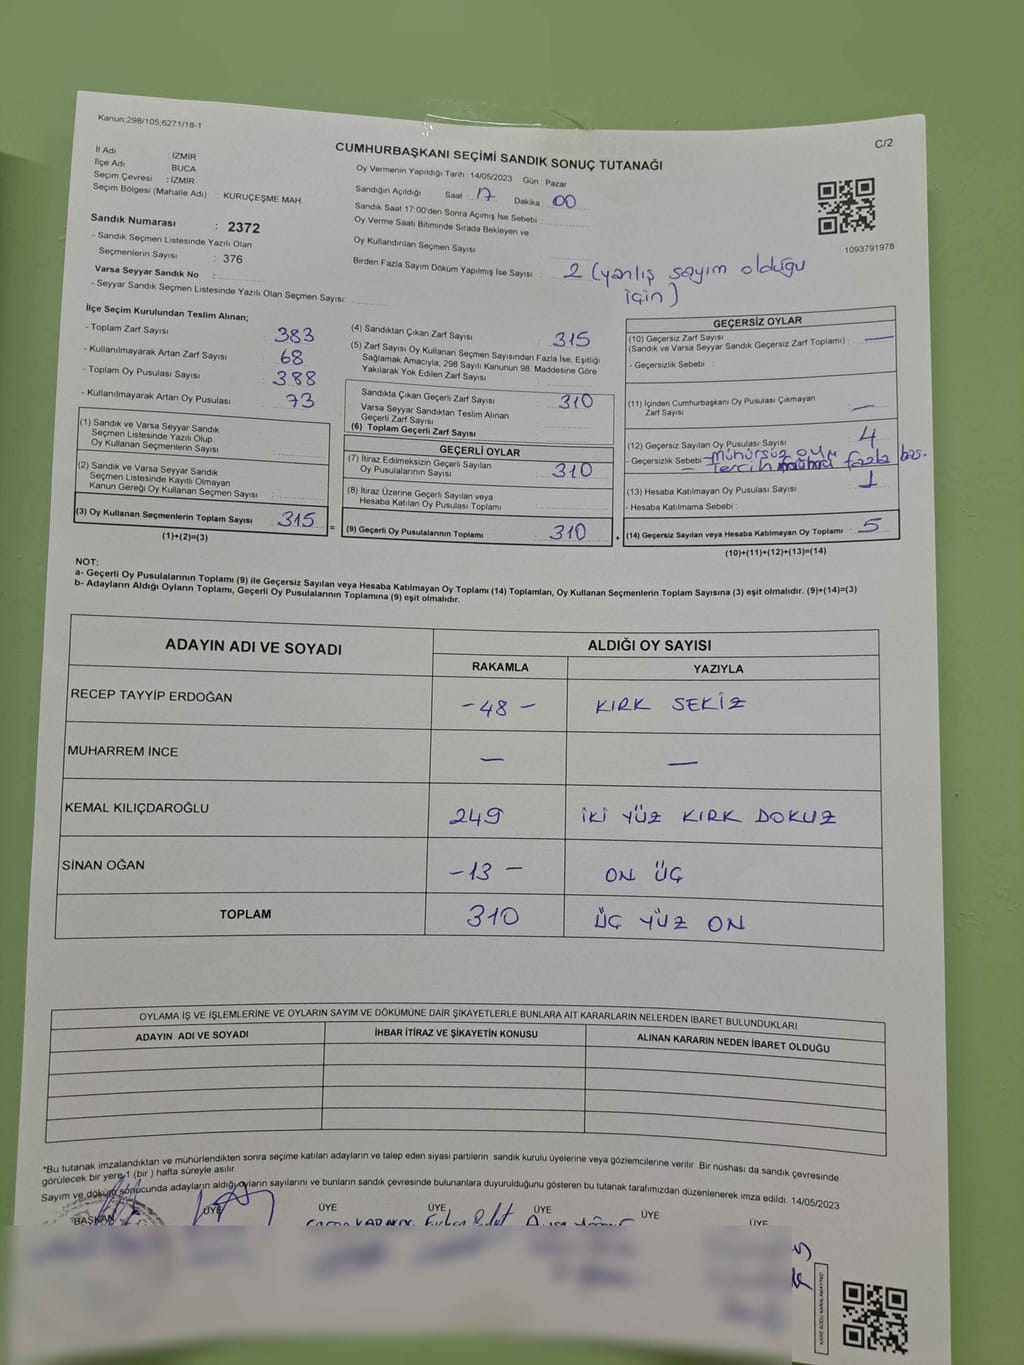 Kanun:298/105;6271/18-1
C/2
CUMHURBAŞKANI SEÇİMİ SANDIK SONUÇ TUTANAĞI
İl Adı : İZMİR
İlçe Adı BUCA
Seçim Çevresi : İZMİR
Seçim Bölgesi (Mahalle Adı) : KURUÇEŞME MAH.
Sandık Numarası : 2372
- Sandık Seçmen Listesinde Yazılı Olan
Seçmenlerin Sayısı : 376
Varsa Seyyar Sandık No :
- Seyyar Sandık Seçmen Listesinde Yazılı Olan Seçmen Sayısı:
Oy Vermenin Yapıldığı Tarih : 14/05/2023 Gün : Pazar
Sandığın Açıldığı Saat : 17 Dakika : 00
Sandık Saat 17:00'den Sonra Açımış İse Sebebi :
Oy Verme Saati Bitiminde Sırada Bekleyen ve
Oy Kullandırılan Seçmen Sayısı
Birden Fazla Sayım Döküm Yapılmış İse Sayısı : 2 (yanlış sayım olduğu
için)
1093791978
İlçe Seçim Kurulundan Teslim Alınan;
- Toplam Zarf Sayısı : 383
- Kullanılmayarak Artan Zarf Sayısı 68
- Toplam Oy Pusulası Sayısı : 388
- Kullanılmayarak Artan Oy Pusulası : 73
(1) Sandık ve Varsa Seyyar Sandık
Seçmen Listesinde Yazılı Olup
Oy Kullanan Seçmenlerin Sayısı :
(2) Sandık ve Varsa Seyyar Sandık
Seçmen Listesinde Kayıtlı Olmayan
Kanun Gereği Oy Kullanan Seçmen Sayısı :
(3) Oy Kullanan Seçmenlerin Toplam Sayısı : 315
(1)+(2)=(3)
(4) Sandıktan Çıkan Zarf Sayısı : 315
(5) Zarf Sayısı Oy Kullanan Seçmen Sayısından Fazla İse, Eşitliği
Sağlamak Amacıyla; 298 Sayılı Kanunun 98. Maddesine Göre
Yakılarak Yok Edilen Zarf Sayısı :
Sandıkta Çıkan Geçerli Zarf Sayısı : 310
Varsa Seyyar Sandıktan Teslim Alınan
Geçerli Zarf Sayısı
(6) Toplam Geçerli Zarf Sayısı
GEÇERLİ OYLAR
(7) İtiraz Edilmeksizin Geçerli Sayılan
Oy Pusulasının Sayısı : 310
(8) İtiraz Üzerine Geçerli Sayılan veya
Hesaba Katılan Oy Pusulası Toplamı :
= (9) Geçerli Oy Pusulalarının Toplamı : 310
GEÇERSİZ OYLAR
(10) Geçersiz Zarf Sayısı
(Sandık ve Varsa Seyyar Sandık Geçersiz Zarf Toplamı) : —
- Geçersizlik Sebebi :
(11) İçinden Cumhurbaşkanı Oy Pusulası Çıkmayan
Zarf Sayısı : —
(12) Geçersiz Sayılan Oy Pusulası Sayısı : 4
- Geçersizlik Sebebi - Mühürsüz oy
- Tercih fazla bas.
(13) Hesaba Katılmayan Oy Pusulası Sayısı : 1
- Hesaba Katılmama Sebebi :
+ (14) Geçersiz Sayılan veya Hesaba Katılmayan Oy Toplamı : 5
(10)+(11)+(12)+(13)=(14)
NOT:
a- Geçerli Oy Pusulalarının Toplamı (9) ile Geçersiz Sayılan veya Hesaba Katılmayan Oy Toplamı (14) Toplamları, Oy Kullanan Seçmenlerin Toplam Sayısına (3) eşit olmalıdır. (9)+(14)=(3)
b- Adayların Aldığı Oyların Toplamı, Geçerli Oy Pusulalarının Toplamına (9) eşit olmalıdır.
ADAYIN ADI VE SOYADI ALDIĞI OY SAYISI
RAKAMLA YAZIYLA
RECEP TAYYİP ERDOĞAN - 48 - KIRK SEKİZ
MUHARREM İNCE — —
KEMAL KILIÇDAROĞLU 249 İKİ YÜZ KIRK DOKUZ
SİNAN OĞAN - 13 - ON ÜÇ
TOPLAM 310 ÜÇ YÜZ ON
OYLAMA İŞ VE İŞLEMLERİNE VE OYLARIN SAYIM VE DÖKÜMÜNE DAİR ŞİKAYETLERLE BUNLARA AİT KARARLARIN NELERDEN İBARET BULUNDUKLARI
ADAYIN ADI VE SOYADI İHBAR İTİRAZ VE ŞİKAYETİN KONUSU ALINAN KARARIN NEDEN İBARET OLDUĞU
*Bu tutanak imzalandıktan ve mühürlendikten sonra seçime katılan adayların ve talep eden siyasi partilerin sandık kurulu üyelerine veya gözlemcilerine verilir. Bir nüshası da sandık çevresinde
görülecek bir yere 1 (bir) hafta süreyle asılır.
Sayım ve döküm sonucunda adayların aldığı oyların sayılarını ve bunların sandık çevresinde bulunanlara duyurulduğunu gösteren bu tutanak tarafımızdan düzenlenerek imza edildi. 14/05/2023
BAŞKAN ÜYE ÜYE ÜYE ÜYE ÜYE ÜYE
KARE KODU KARALAMAYINIZ.